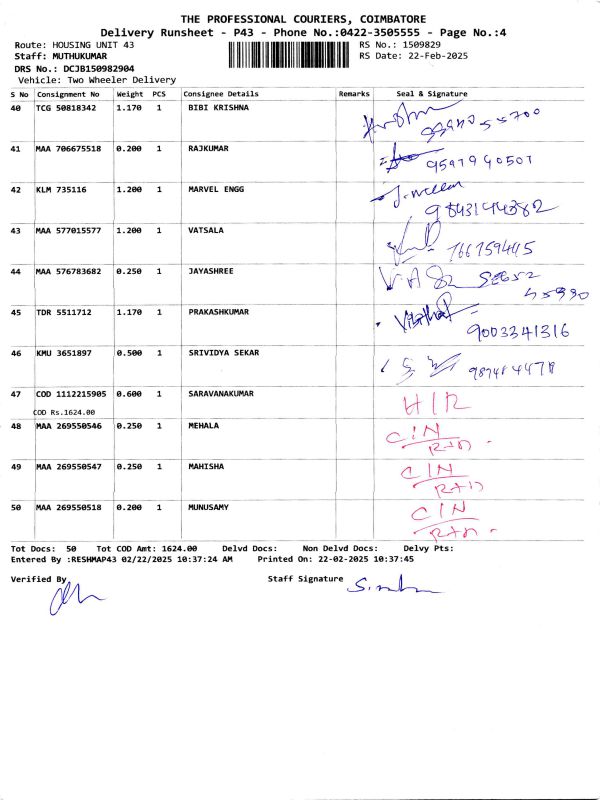 THE PROFESSIONAL COURIERS, COIMBATORE
Delivery Runsheet - P43 - Phone No.:0422-3505555 - Page No.:4
Route: HOUSING UNIT 43 RS No.: 1509829
Staff: MUTHUKUMAR RS Date: 22-Feb-2025
DRS No.: DCJB150982904
Vehicle: Two Wheeler Delivery
S No Consignment No Weight PCS Consignee Details Remarks Seal & Signature
40 TCG 50818342 1.170 1 BIBI KRISHNA
41 MAA 706675518 0.200 1 RAJKUMAR
9597940501
42 KLM 735116 1.200 1 MARVEL ENGG
9843144382
43 MAA 577015577 1.200 1 VATSALA
44 MAA 576783682 0.250 1 JAYASHREE
45 TDR 5511712 1.170 1 PRAKASHKUMAR
9003341316
46 KMU 3651897 0.500 1 SRIVIDYA SEKAR
47 COD 1112215905 0.600 1 SARAVANAKUMAR H/R
COD Rs.1624.00
48 MAA 269550546 0.250 1 MEHALA C/N
49 MAA 269550547 0.250 1 MAHISHA C/N
50 MAA 269550518 0.200 1 MUNUSAMY C/N
Tot Docs: 50 Tot COD Amt: 1624.00 Delvd Docs: Non Delvd Docs: Delvy Pts:
Entered By :RESHMAP43 02/22/2025 10:37:24 AM Printed On: 22-02-2025 10:37:45
Verified By Staff Signature